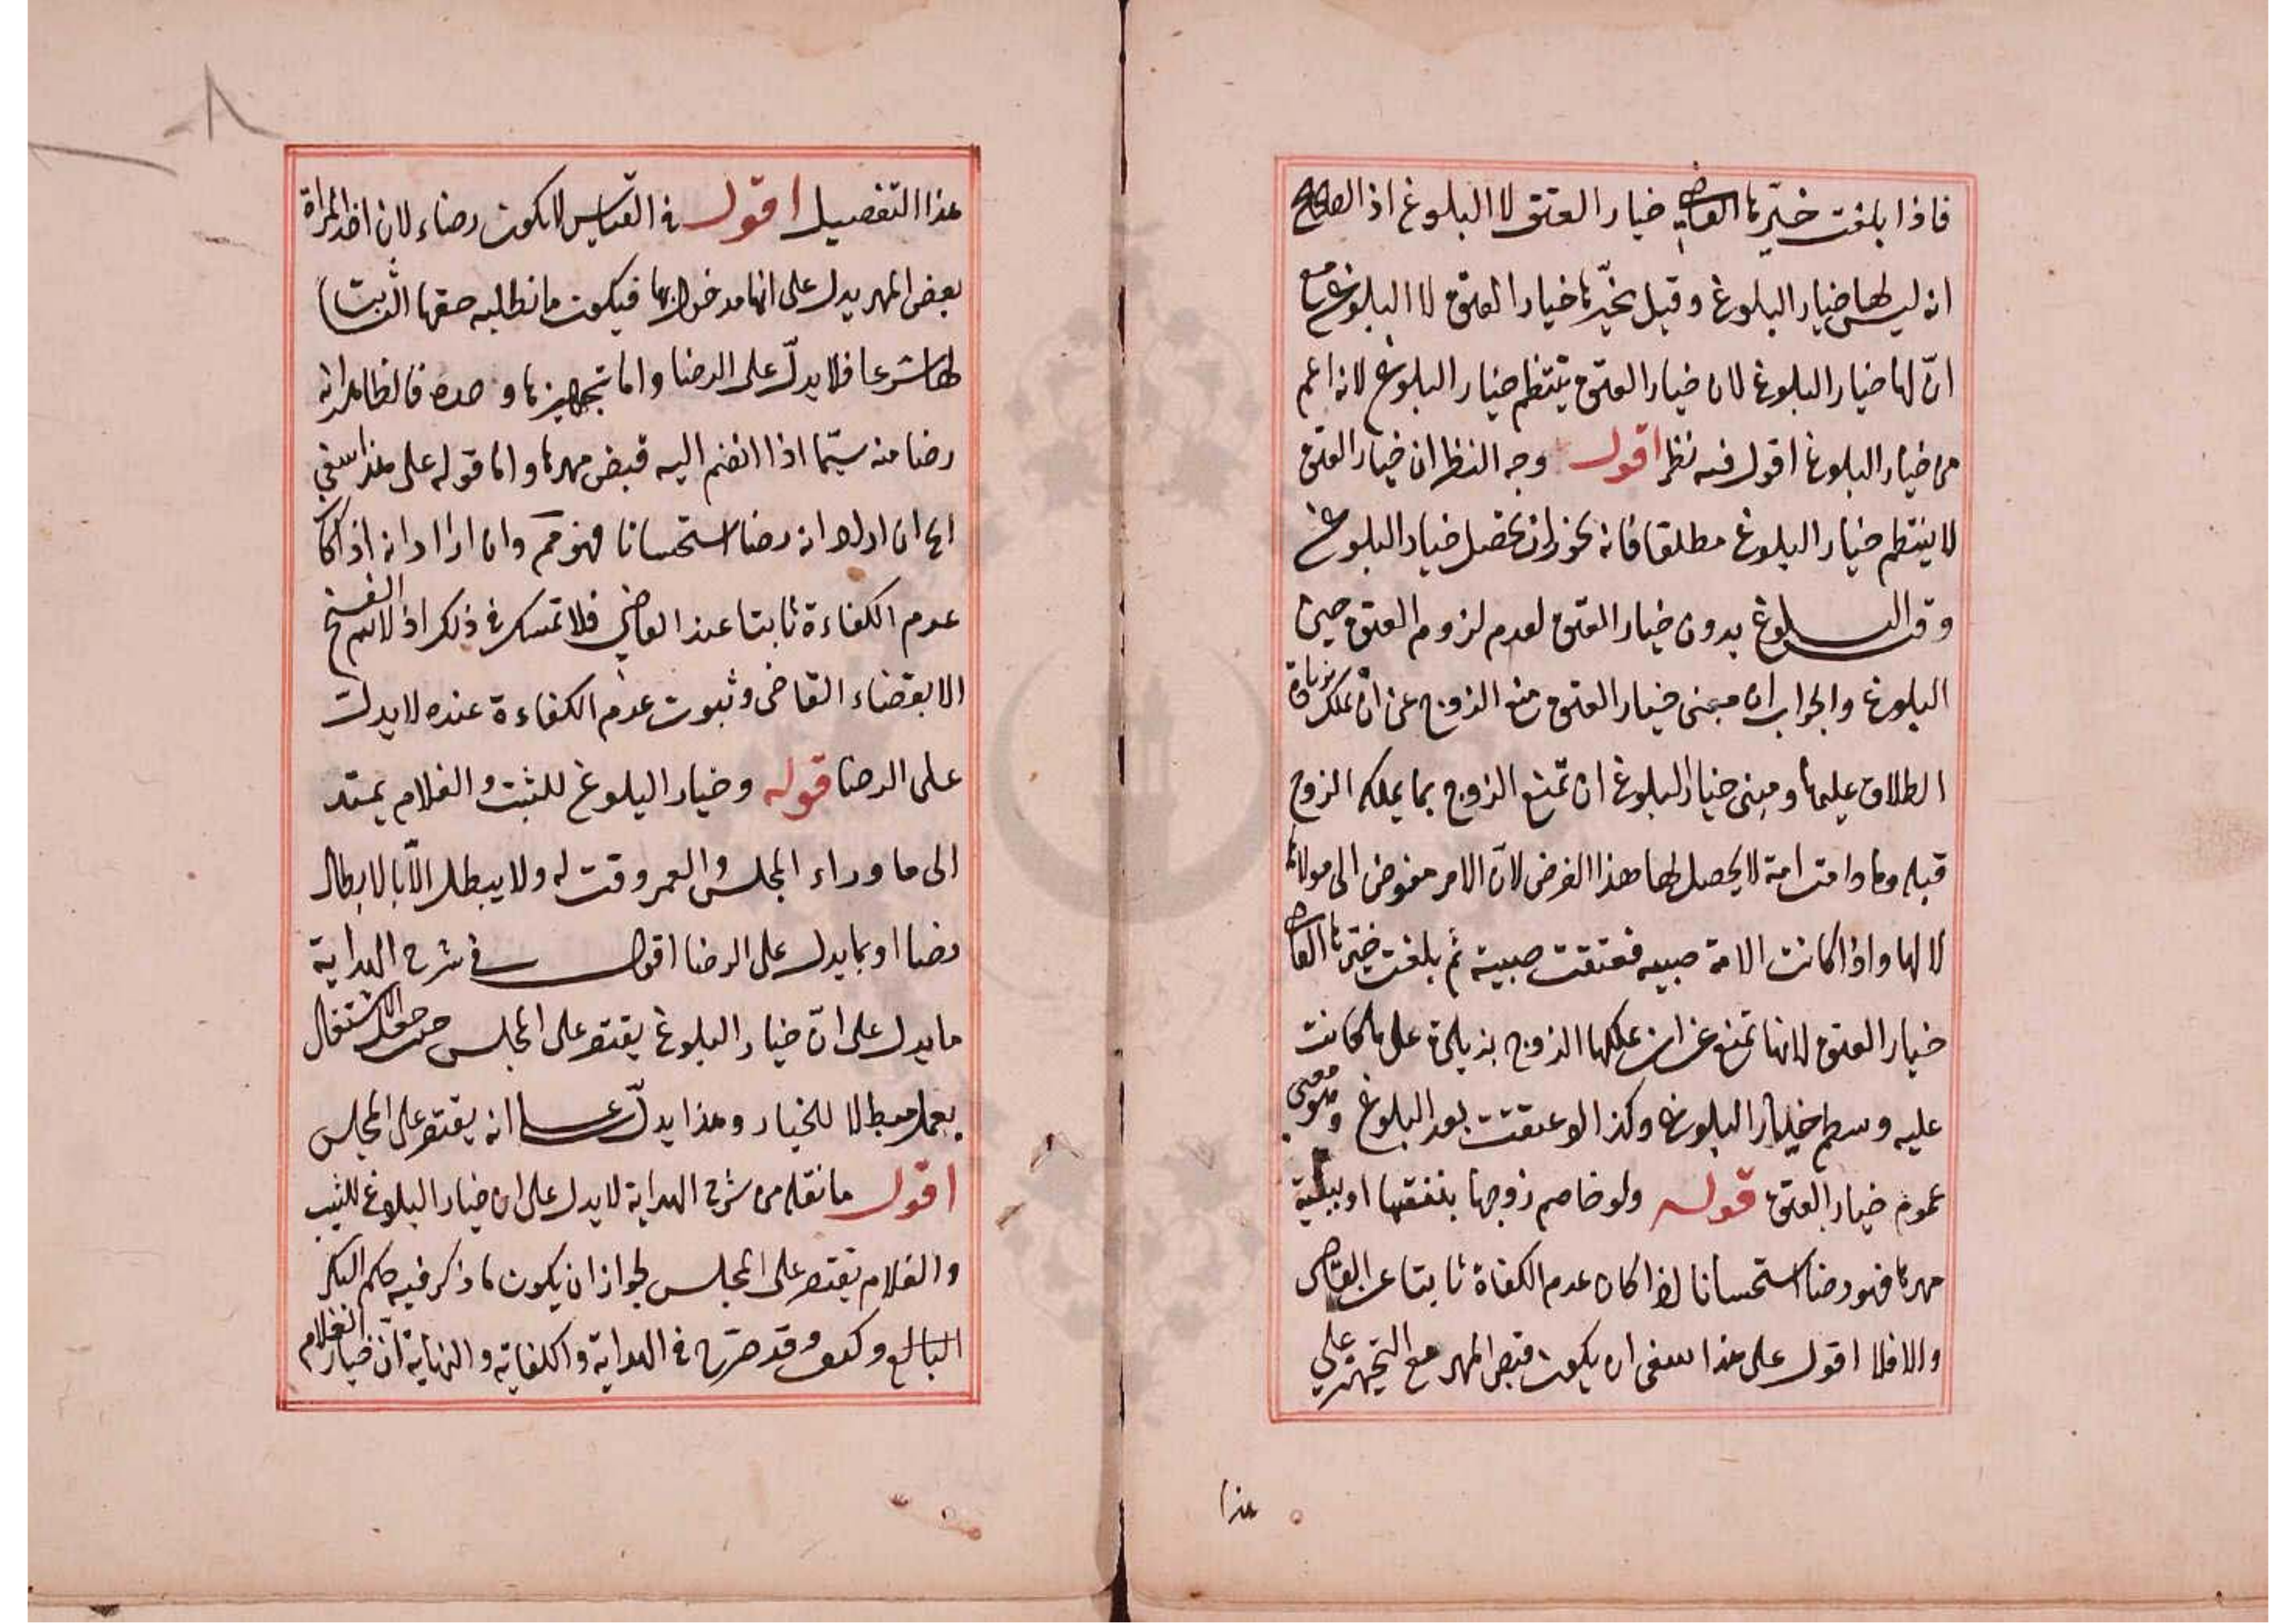 فاذا بلغت خيّرها القاضي خيار العتق لا البلوغ اذ الصحيح
انه ليس لها خيار البلوغ وقيل يخيّرها خيار العتق لا البلوغ مع
انّ لها خيار البلوغ لان خيار العتق ينتظم خيار البلوغ لانه اعم
من خيار البلوغ اقول فيه نظر اقول وجه النظر ان خيار العتق
لا ينتظم خيار البلوغ مطلقا فانه يجوز ان يحصل خيار البلوغ
وقت البلوغ بدون خيار العتق لعدم لزوم العتق حين
البلوغ والجواب ان مبنى خيار العتق منع الزوج عن ان يملك زيادة
الطلاق عليها ومبنى خيار البلوغ ان تمنع الزوج بما يملكه الزوج
قبله وما دامت امة لا يحصل لها هذا الغرض لانّ الامر مفوض الى مولاها
لا لها واذا كانت الامة صبيه فعتقت صبية ثم بلغت خيّرها القاضي
خيار العتق لانها تمنع عن ان يملكها الزوج بزيادة على ما كانت
عليه خيار البلوغ وكذا لو عتقت بعد البلوغ معنى
عموم خيار العتق قوله ولو خاصم زوجها بنفقتها او ببقية
مهرها فهو رضا استحسانا اذا كان عدم الكفاة ثابتا عند القاضي
والا فلا اقول على هذا ينبغي ان يكون قبض المهر مع التجهيز على
هذا
هذا التفصيل اقول في القياس لا يكون رضاء لان اخذ المراة
بعض المهر يدل على انها مدخول بها فيكون ما تطلبه حقها الثابت
لها شرعا فلا يدلّ على الرضا واما تجهيزها وحده فالظاهر انه
رضا منه سيّما اذا انضم اليه قبض مهرها واما قوله على هذا ينبغي
الخ ان اراد انه رضا استحسانا فهو مم وان اراد انه اذا كان
عدم الكفاءة ثابتا عند القاضي فلا تمسك في ذلك اذ لا يتم الفسخ
الا بقضاء القاضى وثبوت عدم الكفاءة عنده لا يدل
على الرضا قوله وخيار البلوغ للثيب والغلام يمتد
الى ما وراء المجلس والعمر وقت له ولا يبطل الّا بالابطال
رضا او بما يدل على الرضا اقول في شرح الهداية
ما يدل على انّ خيار البلوغ يقتصر على المجلس حيث جعل الاشتغال
بعمل مبطلا للخيار وهذا يدلّ على انه يقتصر على المجلس
اقول ما نقله من شرح الهداية لا يدل على ان خيار البلوغ للثيب
والغلام يقتصر على المجلس لجواز ان يكون ما ذكر فيه حكم البكر
البالغ وكيف وقد صرّح في الهداية والكفاية والنهاية انّ خيار الغلام